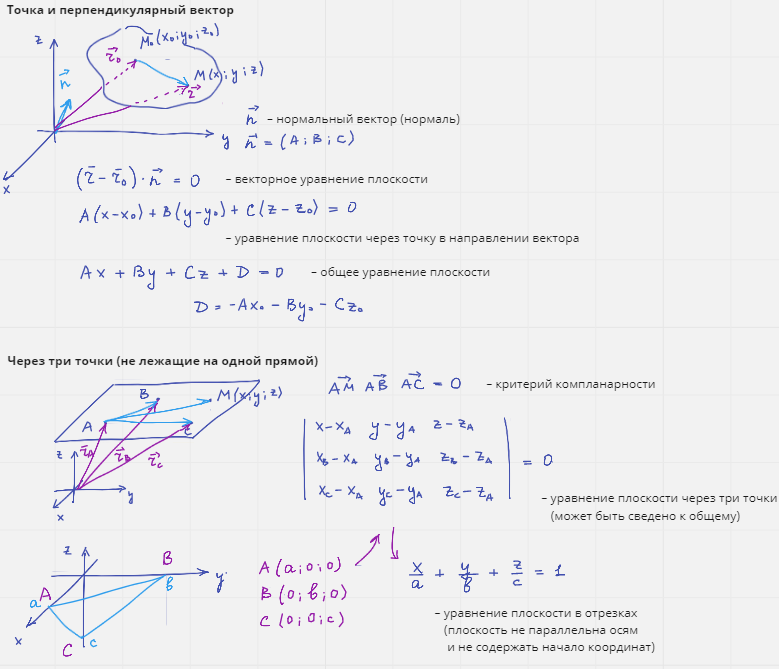 Точка и перпендикулярный вектор
z
M₀(x₀; y₀; z₀)
r⃗₀
M(x; y; z)
n⃗
r⃗
y
x
n⃗ – нормальный вектор (нормаль)
n⃗ = (A; B; C)
(r̄ − r̄₀) · n⃗ = 0 – векторное уравнение плоскости
A(x−x₀) + B(y−y₀) + C(z − z₀) = 0
– уравнение плоскости через точку в направлении вектора
Ax + By + Cz + D = 0 – общее уравнение плоскости
D = −Ax₀ − By₀ − Cz₀
Через три точки (не лежащие на одной прямой)
B
M(x; y; z)
A
C
r⃗A
r⃗B
r⃗C
z
y
x
AM⃗ AB⃗ AC⃗ = 0 – критерий компланарности
| x−xA y−yA z−zA |
| xB−xA yB−yA zB−zA | = 0
| xC−xA yC−yA zC−zA |
– уравнение плоскости через три точки
(может быть сведено к общему)
z
B
y
b
A
a
x
C
c
A(a; 0; 0)
B(0; b; 0)
C(0; 0; c)
x/a + y/b + z/c = 1
– уравнение плоскости в отрезках
(плоскость не параллельна осям
и не содержать начало координат)